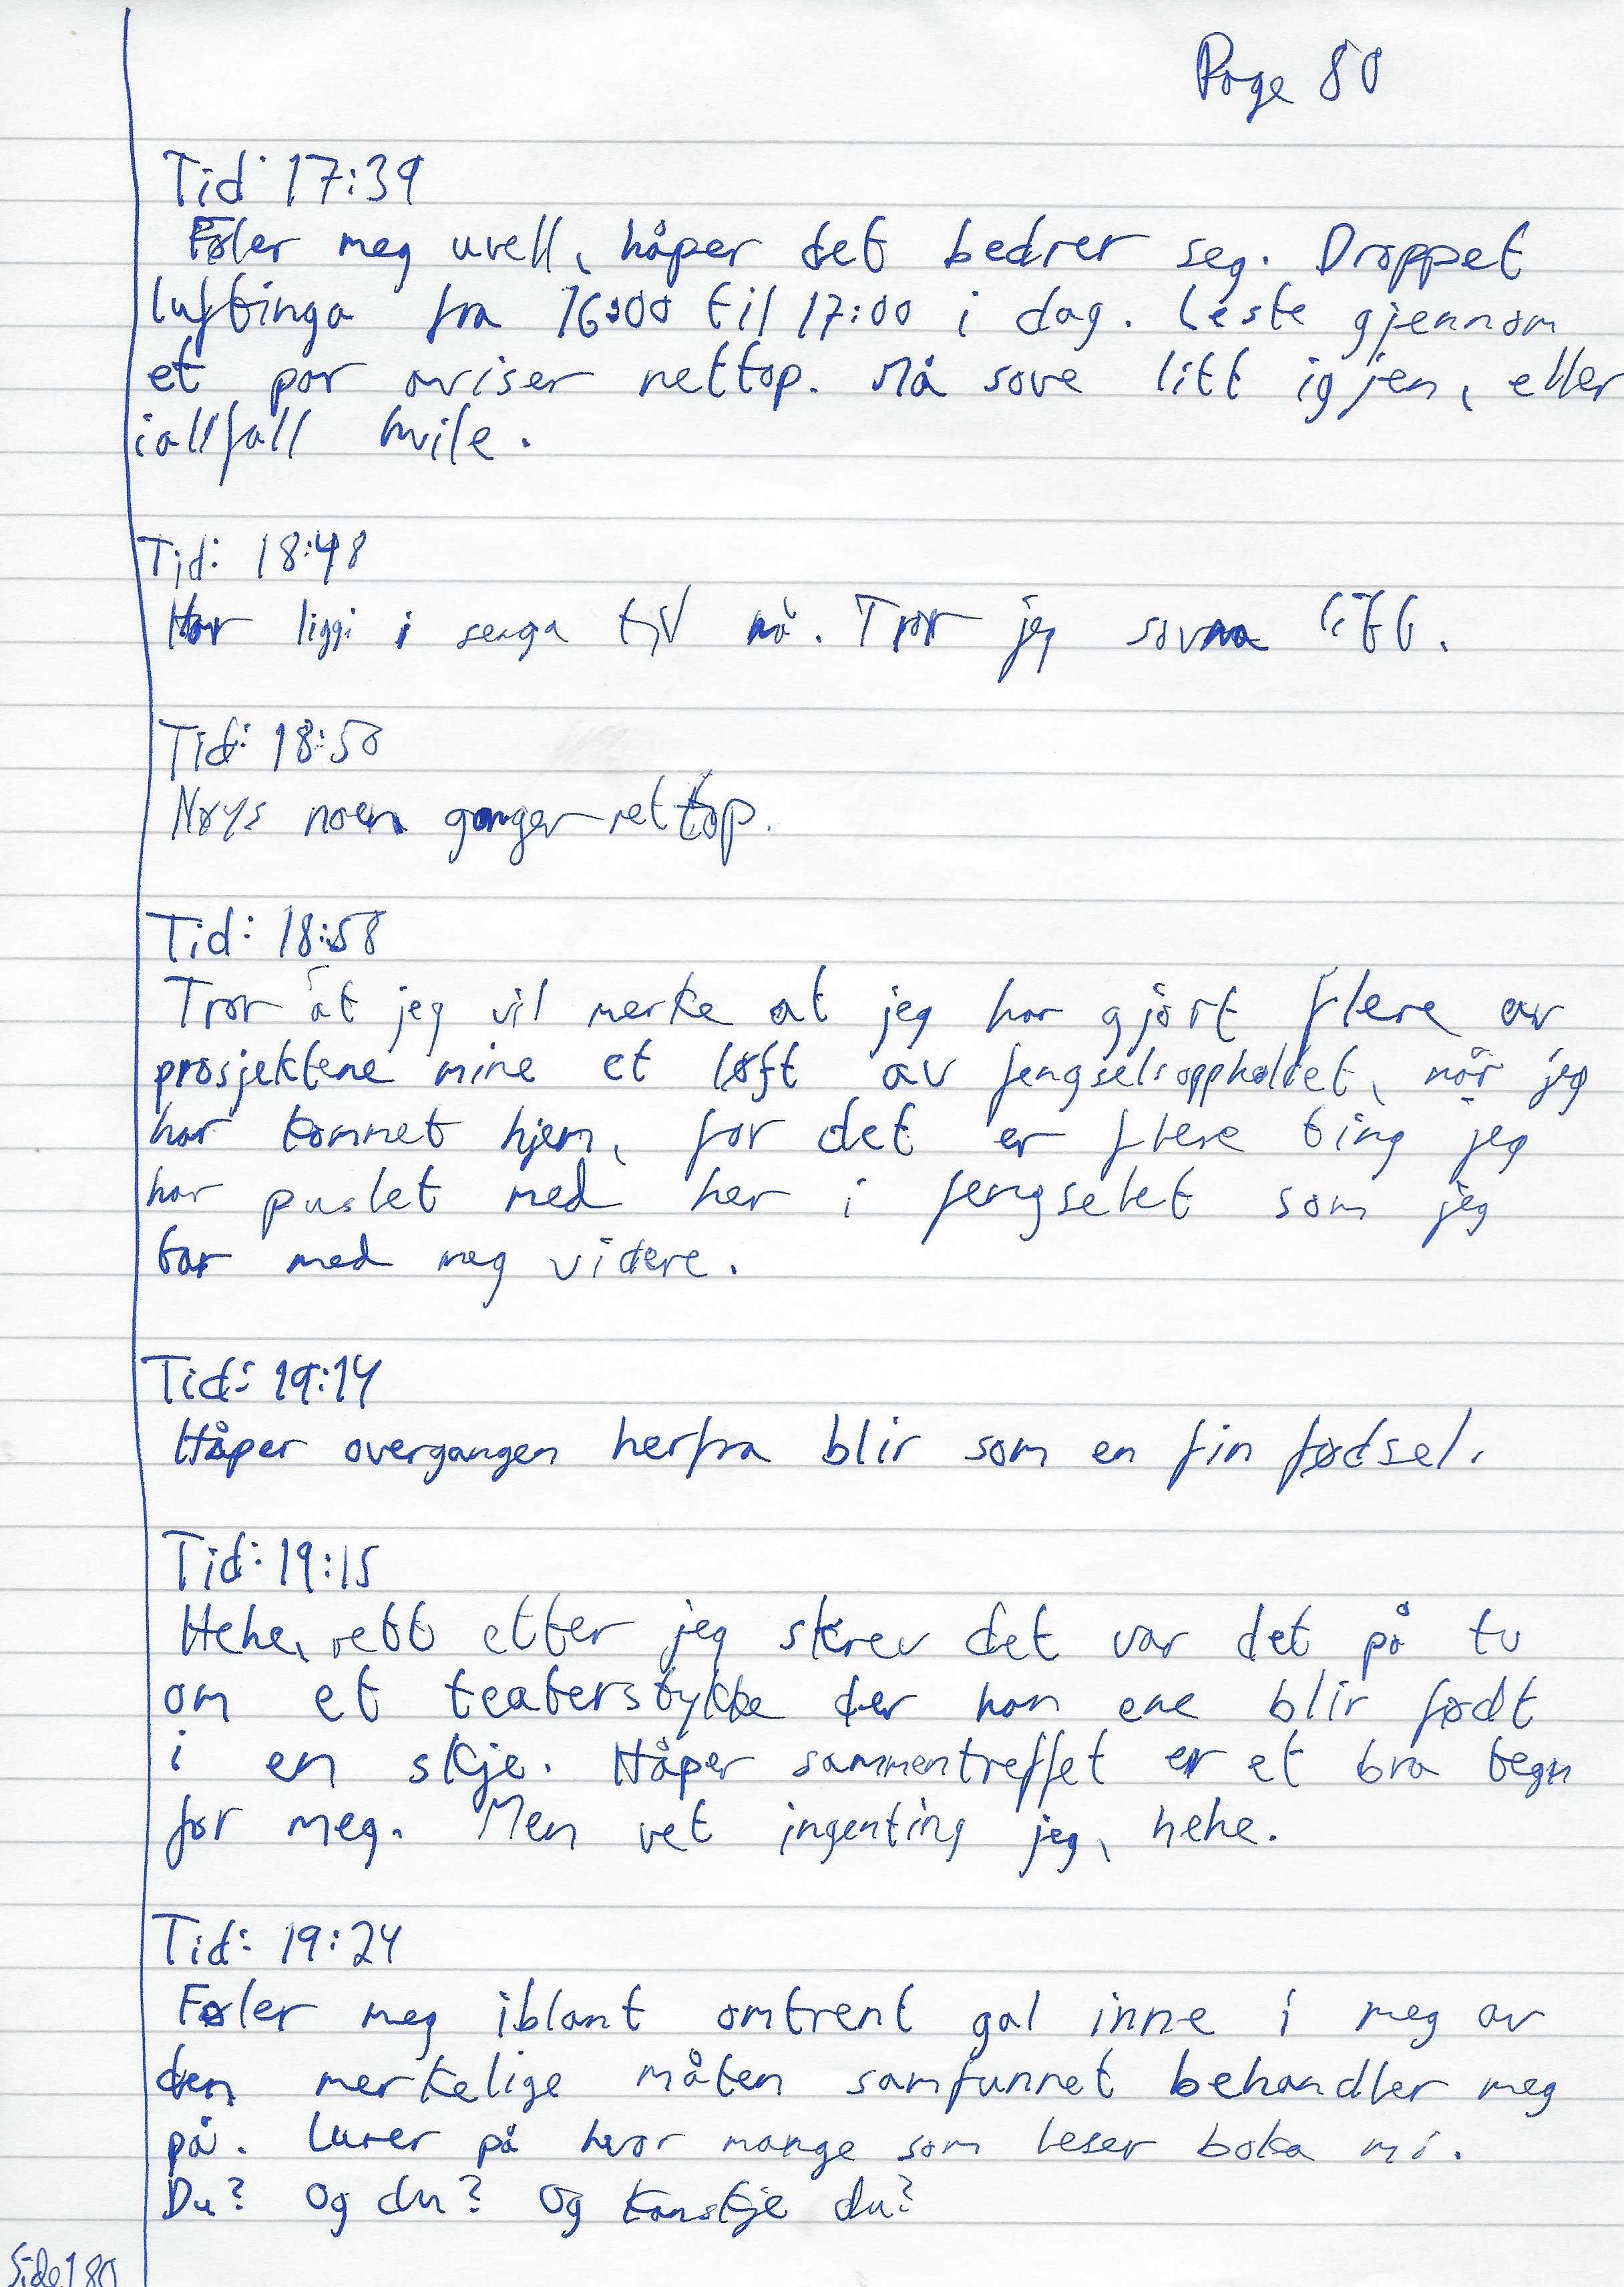 Page 80
Tid: 17:39
Føler meg uvell, håper det bedrer seg. Droppet
luftinga fra 16:00 til 17:00 i dag. Leste gjennom
et par aviser nettop. Må sove litt igjen, eller
iallfall hvile.
Tid: 18:48
Har liggi i senga til nå. Tror jeg sovna litt.
Tid: 18:50
Nøys noen ganger nettop.
Tid: 18:58
Tror at jeg vil merke at jeg har gjort flere av
prosjektene mine et løft av fengselsoppholdet, når jeg
har kommet hjem, for det er flere ting jeg
har puslet med her i fengselet som jeg
tar med meg videre.
Tid: 19:14
Håper overgangen herfra blir som en fin fødsel.
Tid: 19:15
Hehe, rett etter jeg skrev det var det på tv
om et teaterstykke der han ene blir født
i en skje. Håper sammentreffet er et bra tegn
for meg. Men vet ingenting jeg, hehe.
Tid: 19:24
Føler meg iblant omtrent gal inne i meg av
den merkelige måten samfunnet behandler meg
på. Lurer på hvor mange som leser boka mi.
Du? Og du? Og kanskje du?